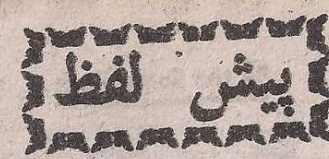 پیش لفظ